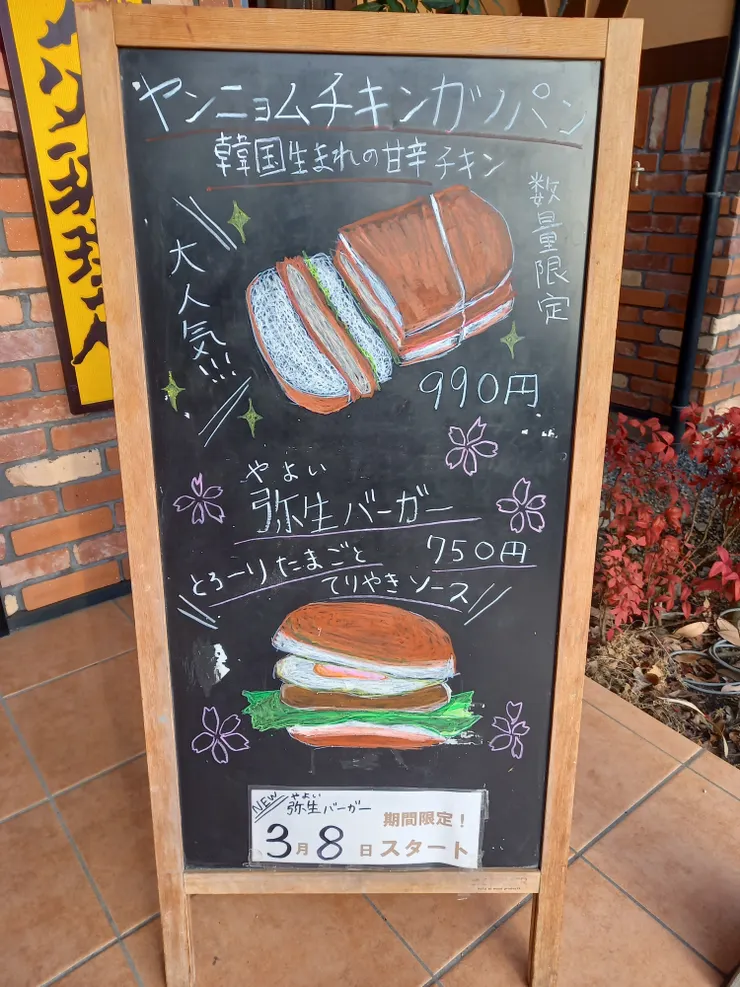 ヤンニョムチキンカツパン
韓国生まれの甘辛チキン
数量限定
大人気!!!
990円
やよい
弥生バーガー
750円
とろーりたまごと
てりやきソース
NEW やよい
弥生バーガー
期間限定!
3月8日スタート